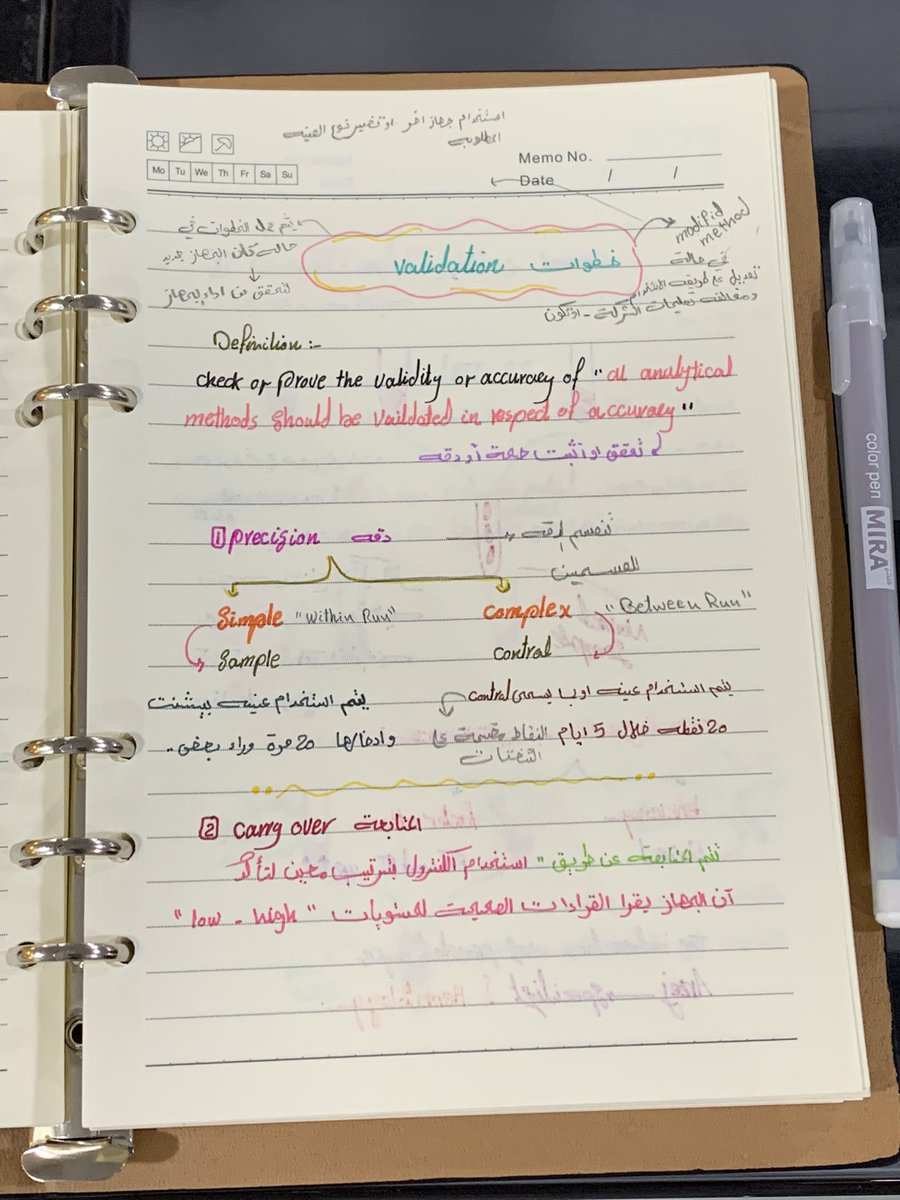 استخدام جهاز اخر او تغيير نوع العينه
المطلوب
Memo No.
Mo Tu We Th Fr Sa Su
Date / /
modifid method
يتم عمل الخطوات في
حالت كان الجهاز جديد
لتحقق من اداء الجهاز
خطوات validation
في حالة
تعديل على طريقة الاستخدام
ومخالفت تعليمات الشركة - او تكون
Definition :-
check or prove the validity or accuracy of "al analytical
methods should be vaildated in respect of accuracy"
تحقق او تثبت صحة أو دقه
1 precision دقه
تنقسم الدقه
لقسمين
Simple "Within Run"
complex "Between Run"
Sample
control
يتم استخدام عينه بيشنت
وادخالها 20 مرة وراء بعض.
يتم استخدام عينه او ما يسمى control
20 نقطه خلال 5 ايام النقاط مقسمة على
الشفتات
2 Carry over المتابعة
تتم المتابعه عن طريق "استخدام الكنترول بترتيب معين لتأكد
آن الجهاز يقرا القراءات الصحيحة لمستويات "low - high"
color pen MIRA Plus